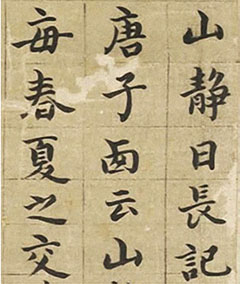 山靜日長記
唐子西云山
每春夏之交